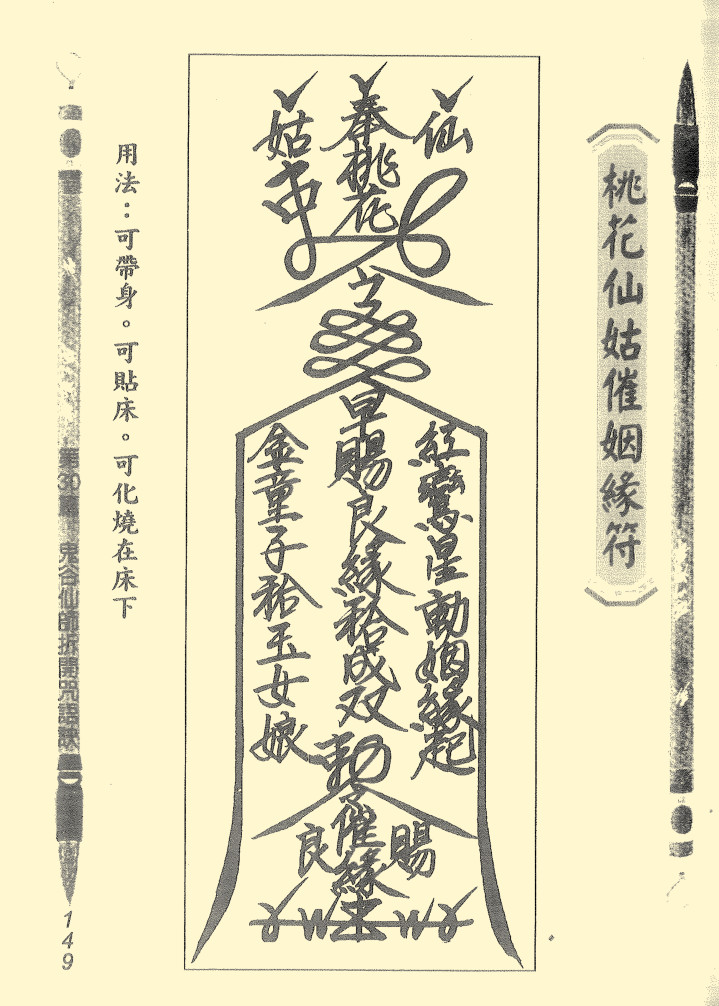 桃花仙姑催姻緣符
仙
奉桃花
姑
紅鸞星動姻緣起
早賜良緣
成双
金童子
玉女娘
賜
催緣
良
用法：可帶身。可貼床。可化燒在床下
鬼谷仙師拆開咒語訣
149